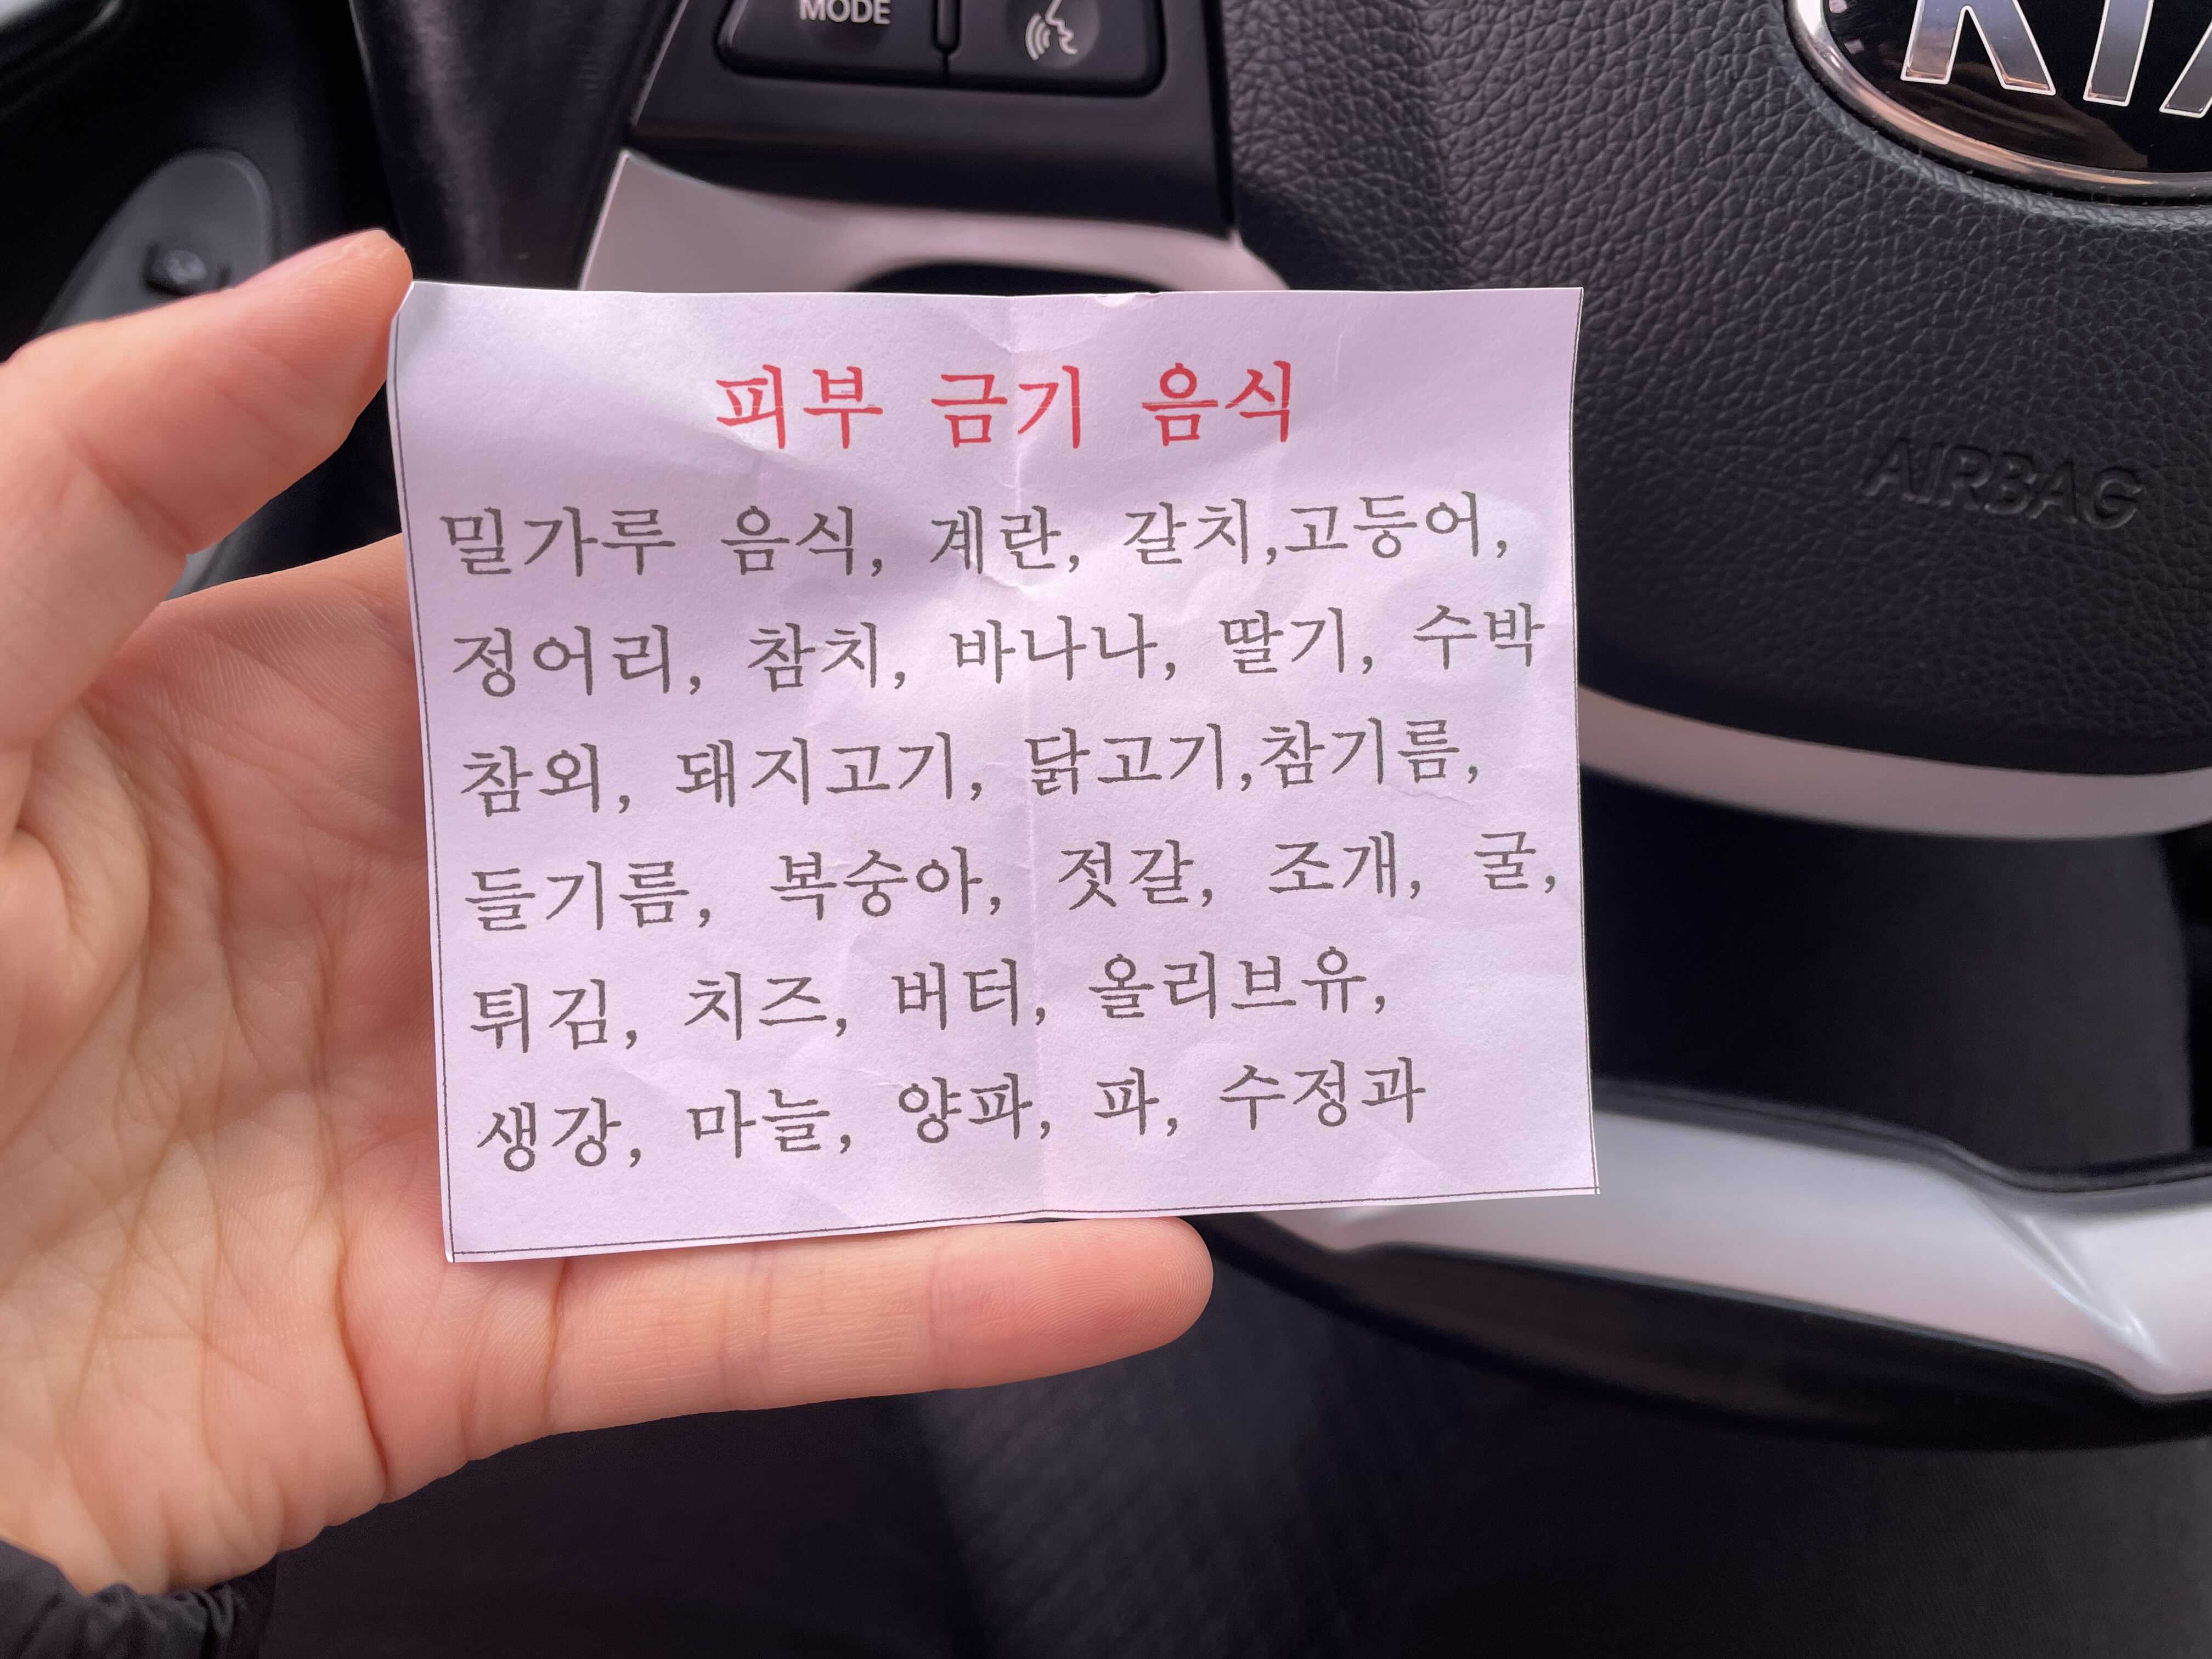 MODE
KIA
AIRBAG
피부 금기 음식
밀가루 음식, 계란, 갈치,고등어,
정어리, 참치, 바나나, 딸기, 수박
참외, 돼지고기, 닭고기,참기름,
들기름, 복숭아, 젓갈, 조개, 굴,
튀김, 치즈, 버터, 올리브유,
생강, 마늘, 양파, 파, 수정과